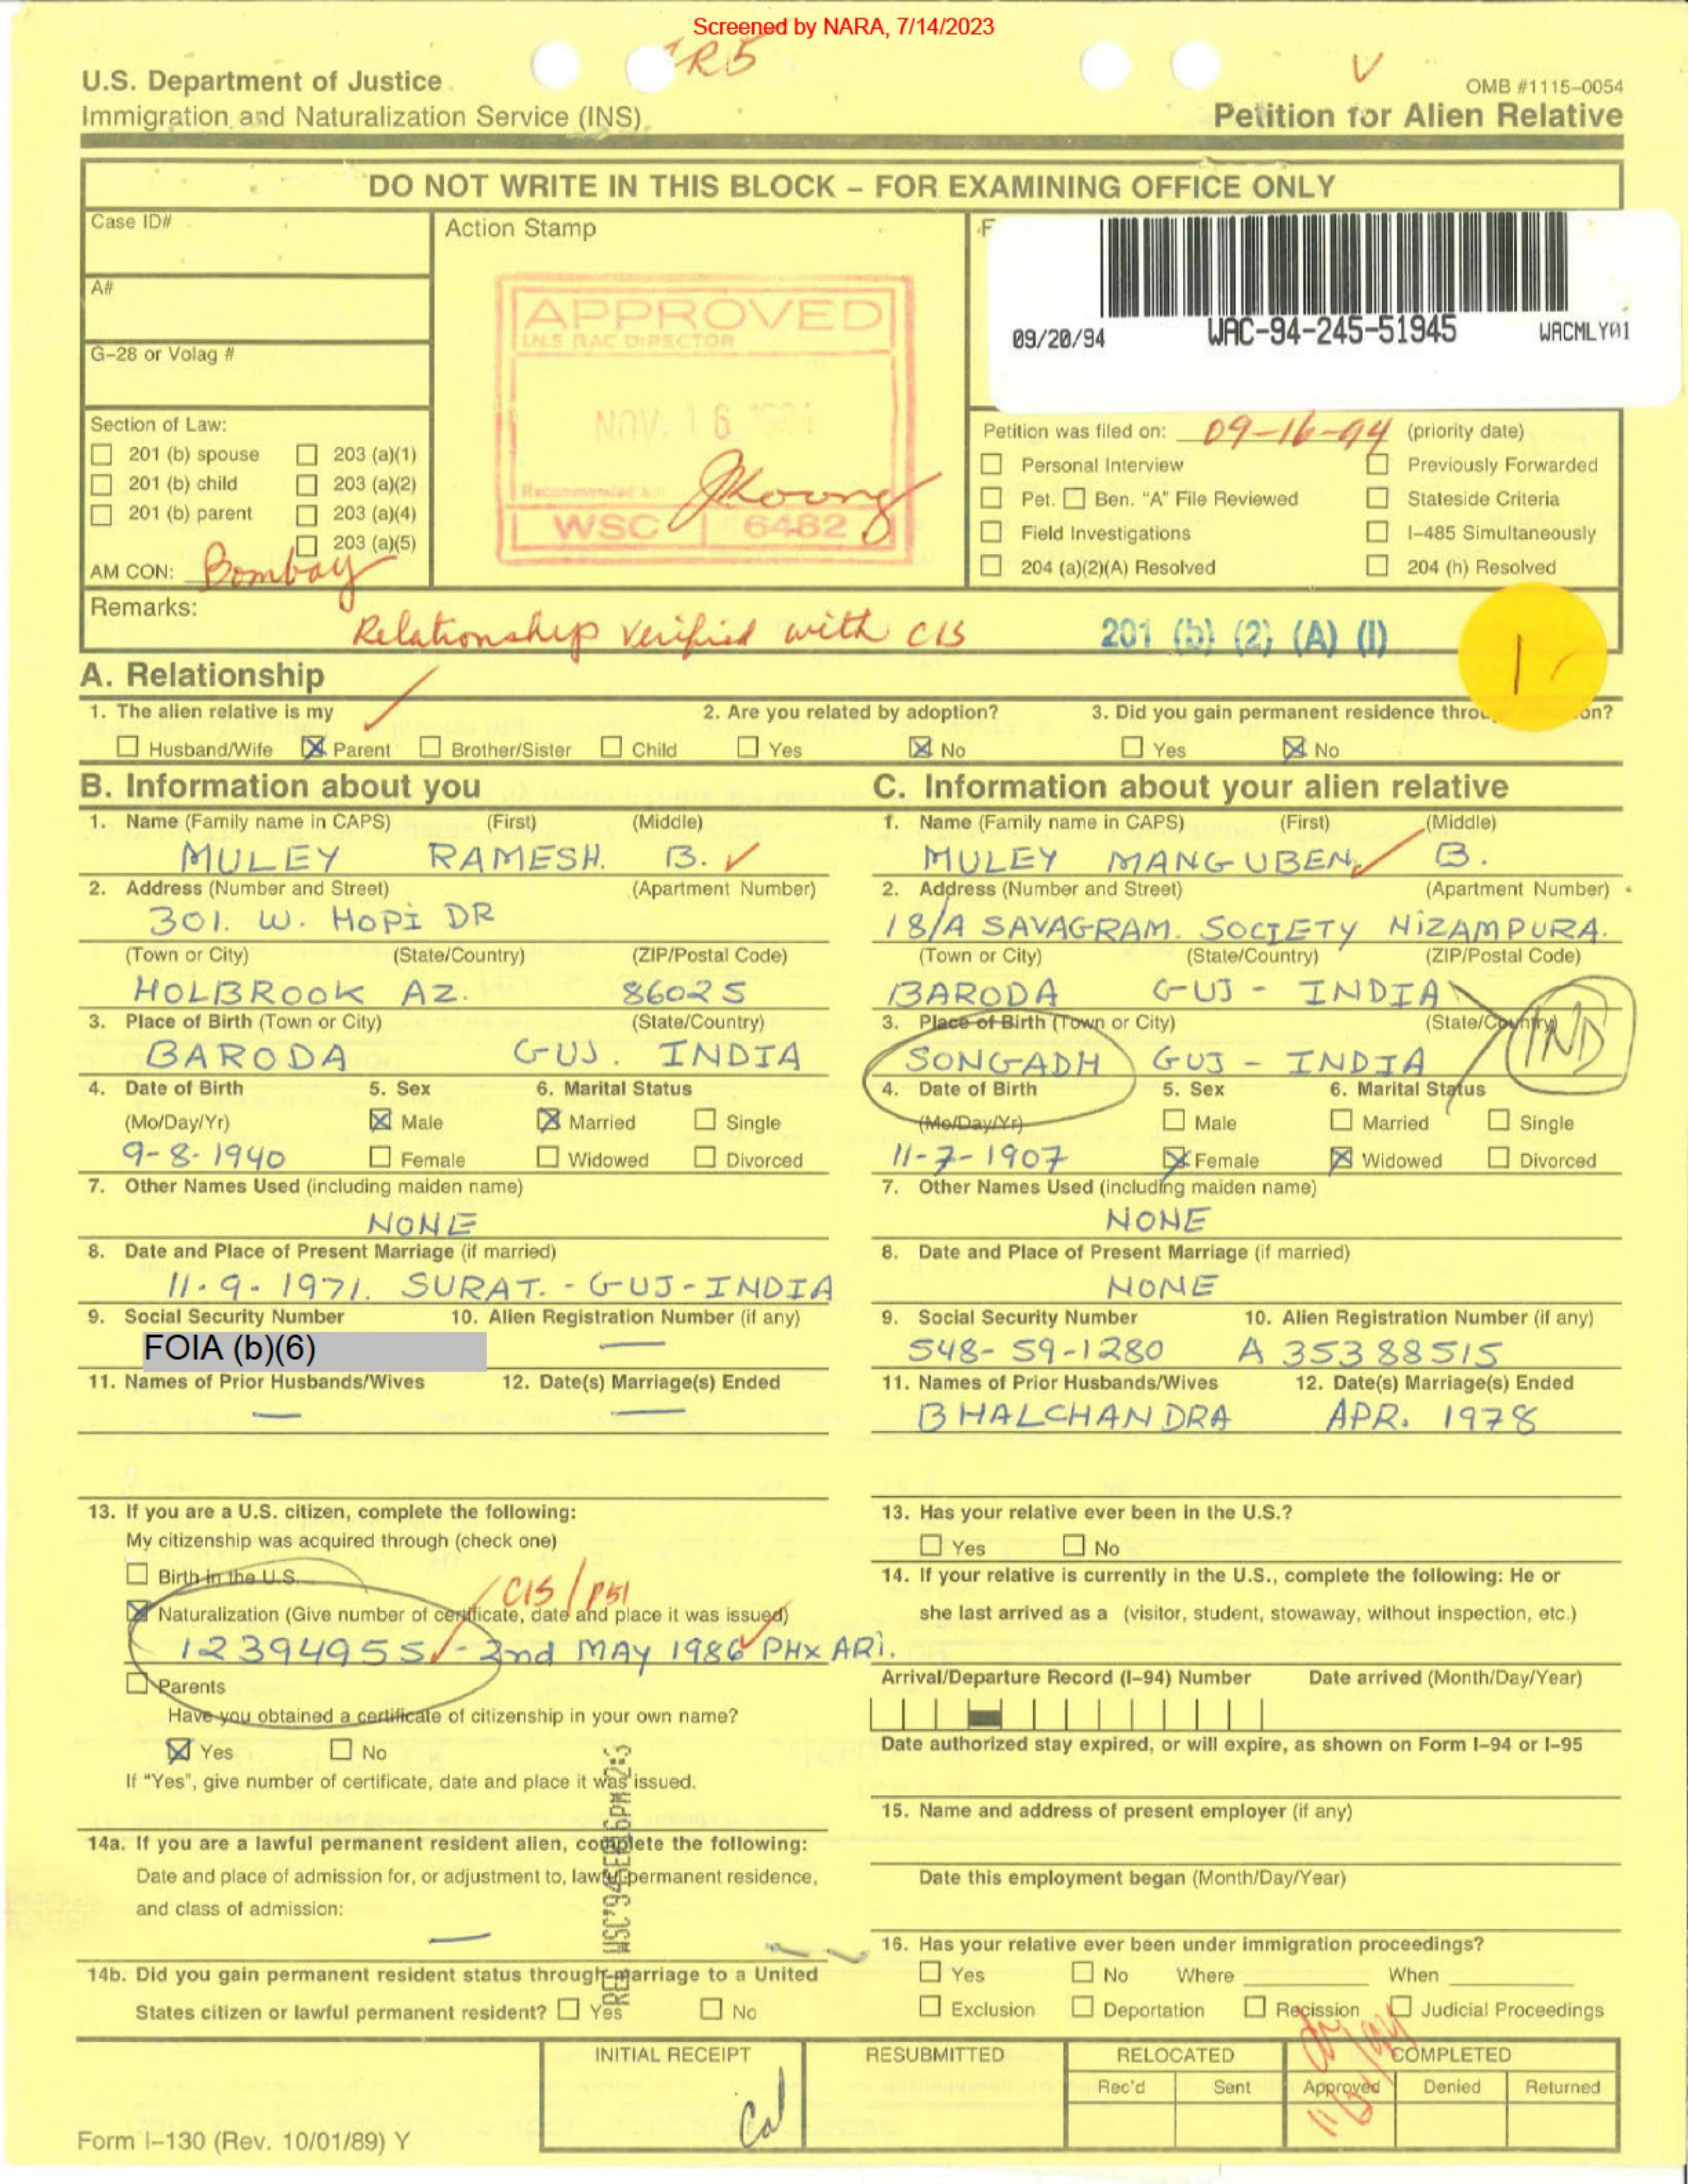 Screened by NARA, 7/14/2023
U.S. Department of Justice
Immigration and Naturalization Service (INS)
OMB #1115-0054
Petition for Alien Relative
DO NOT WRITE IN THIS BLOCK – FOR EXAMINING OFFICE ONLY
Case ID#
A#
G-28 or Volag #
Section of Law:
201 (b) spouse 203 (a)(1)
201 (b) child 203 (a)(2)
201 (b) parent 203 (a)(4)
203 (a)(5)
AM CON: Bombay
Action Stamp
APPROVED
NOV. 16
WSC 6482
09/20/94 WAC-94-245-51945 WACMLY01
Petition was filed on: 09-16-94 (priority date)
Personal Interview Previously Forwarded
Pet. Ben. "A" File Reviewed Stateside Criteria
Field Investigations I-485 Simultaneously
204 (a)(2)(A) Resolved 204 (h) Resolved
Remarks: Relationship verified with CIS 201 (b) (2) (A) (I)
A. Relationship
1. The alien relative is my 2. Are you related by adoption? 3. Did you gain permanent residence
Husband/Wife Parent Brother/Sister Child Yes No Yes No
B. Information about you
1. Name (Family name in CAPS) (First) (Middle)
MULEY RAMESH. B.
2. Address (Number and Street) (Apartment Number)
301. W. HOPI DR
(Town or City) (State/Country) (ZIP/Postal Code)
HOLBROOK AZ. 86025
3. Place of Birth (Town or City) (State/Country)
BARODA GUJ. INDIA
4. Date of Birth 5. Sex 6. Marital Status
(Mo/Day/Yr) Male Married Single
9-8-1940 Female Widowed Divorced
7. Other Names Used (including maiden name)
NONE
8. Date and Place of Present Marriage (if married)
11-9-1971. SURAT.-GUJ-INDIA
9. Social Security Number 10. Alien Registration Number (if any)
FOIA (b)(6)
11. Names of Prior Husbands/Wives 12. Date(s) Marriage(s) Ended
13. If you are a U.S. citizen, complete the following:
My citizenship was acquired through (check one)
Birth in the U.S.
CIS/P51
Naturalization (Give number of certificate, date and place it was issued)
12394955 - 2nd MAY 1986 PHX ARI.
Parents
Have you obtained a certificate of citizenship in your own name?
Yes No
If "Yes", give number of certificate, date and place it was issued.
14a. If you are a lawful permanent resident alien, complete the following:
Date and place of admission for, or adjustment to, lawful permanent residence,
and class of admission:
14b. Did you gain permanent resident status through marriage to a United
States citizen or lawful permanent resident? Yes No
C. Information about your alien relative
1. Name (Family name in CAPS) (First) (Middle)
MULEY MANGUBEN B.
2. Address (Number and Street) (Apartment Number)
18/A SAVAGRAM. SOCIETY NIZAMPURA.
(Town or City) (State/Country) (ZIP/Postal Code)
BARODA GUJ - INDIA
3. Place of Birth (Town or City) (State/Country)
SONGADH GUJ - INDIA IND
4. Date of Birth 5. Sex 6. Marital Status
(Mo/Day/Yr) Male Married Single
11-7-1907 Female Widowed Divorced
7. Other Names Used (including maiden name)
NONE
8. Date and Place of Present Marriage (if married)
NONE
9. Social Security Number 10. Alien Registration Number (if any)
548-59-1280 A 35388515
11. Names of Prior Husbands/Wives 12. Date(s) Marriage(s) Ended
BHALCHANDRA APR. 1978
13. Has your relative ever been in the U.S.?
Yes No
14. If your relative is currently in the U.S., complete the following: He or
she last arrived as a (visitor, student, stowaway, without inspection, etc.)
Arrival/Departure Record (I-94) Number Date arrived (Month/Day/Year)
Date authorized stay expired, or will expire, as shown on Form I-94 or I-95
15. Name and address of present employer (if any)
Date this employment began (Month/Day/Year)
16. Has your relative ever been under immigration proceedings?
Yes No Where When
Exclusion Deportation Recission Judicial Proceedings
INITIAL RECEIPT RESUBMITTED RELOCATED COMPLETED
Rec'd Sent Approved Denied Returned
Cal
Form I-130 (Rev. 10/01/89) Y